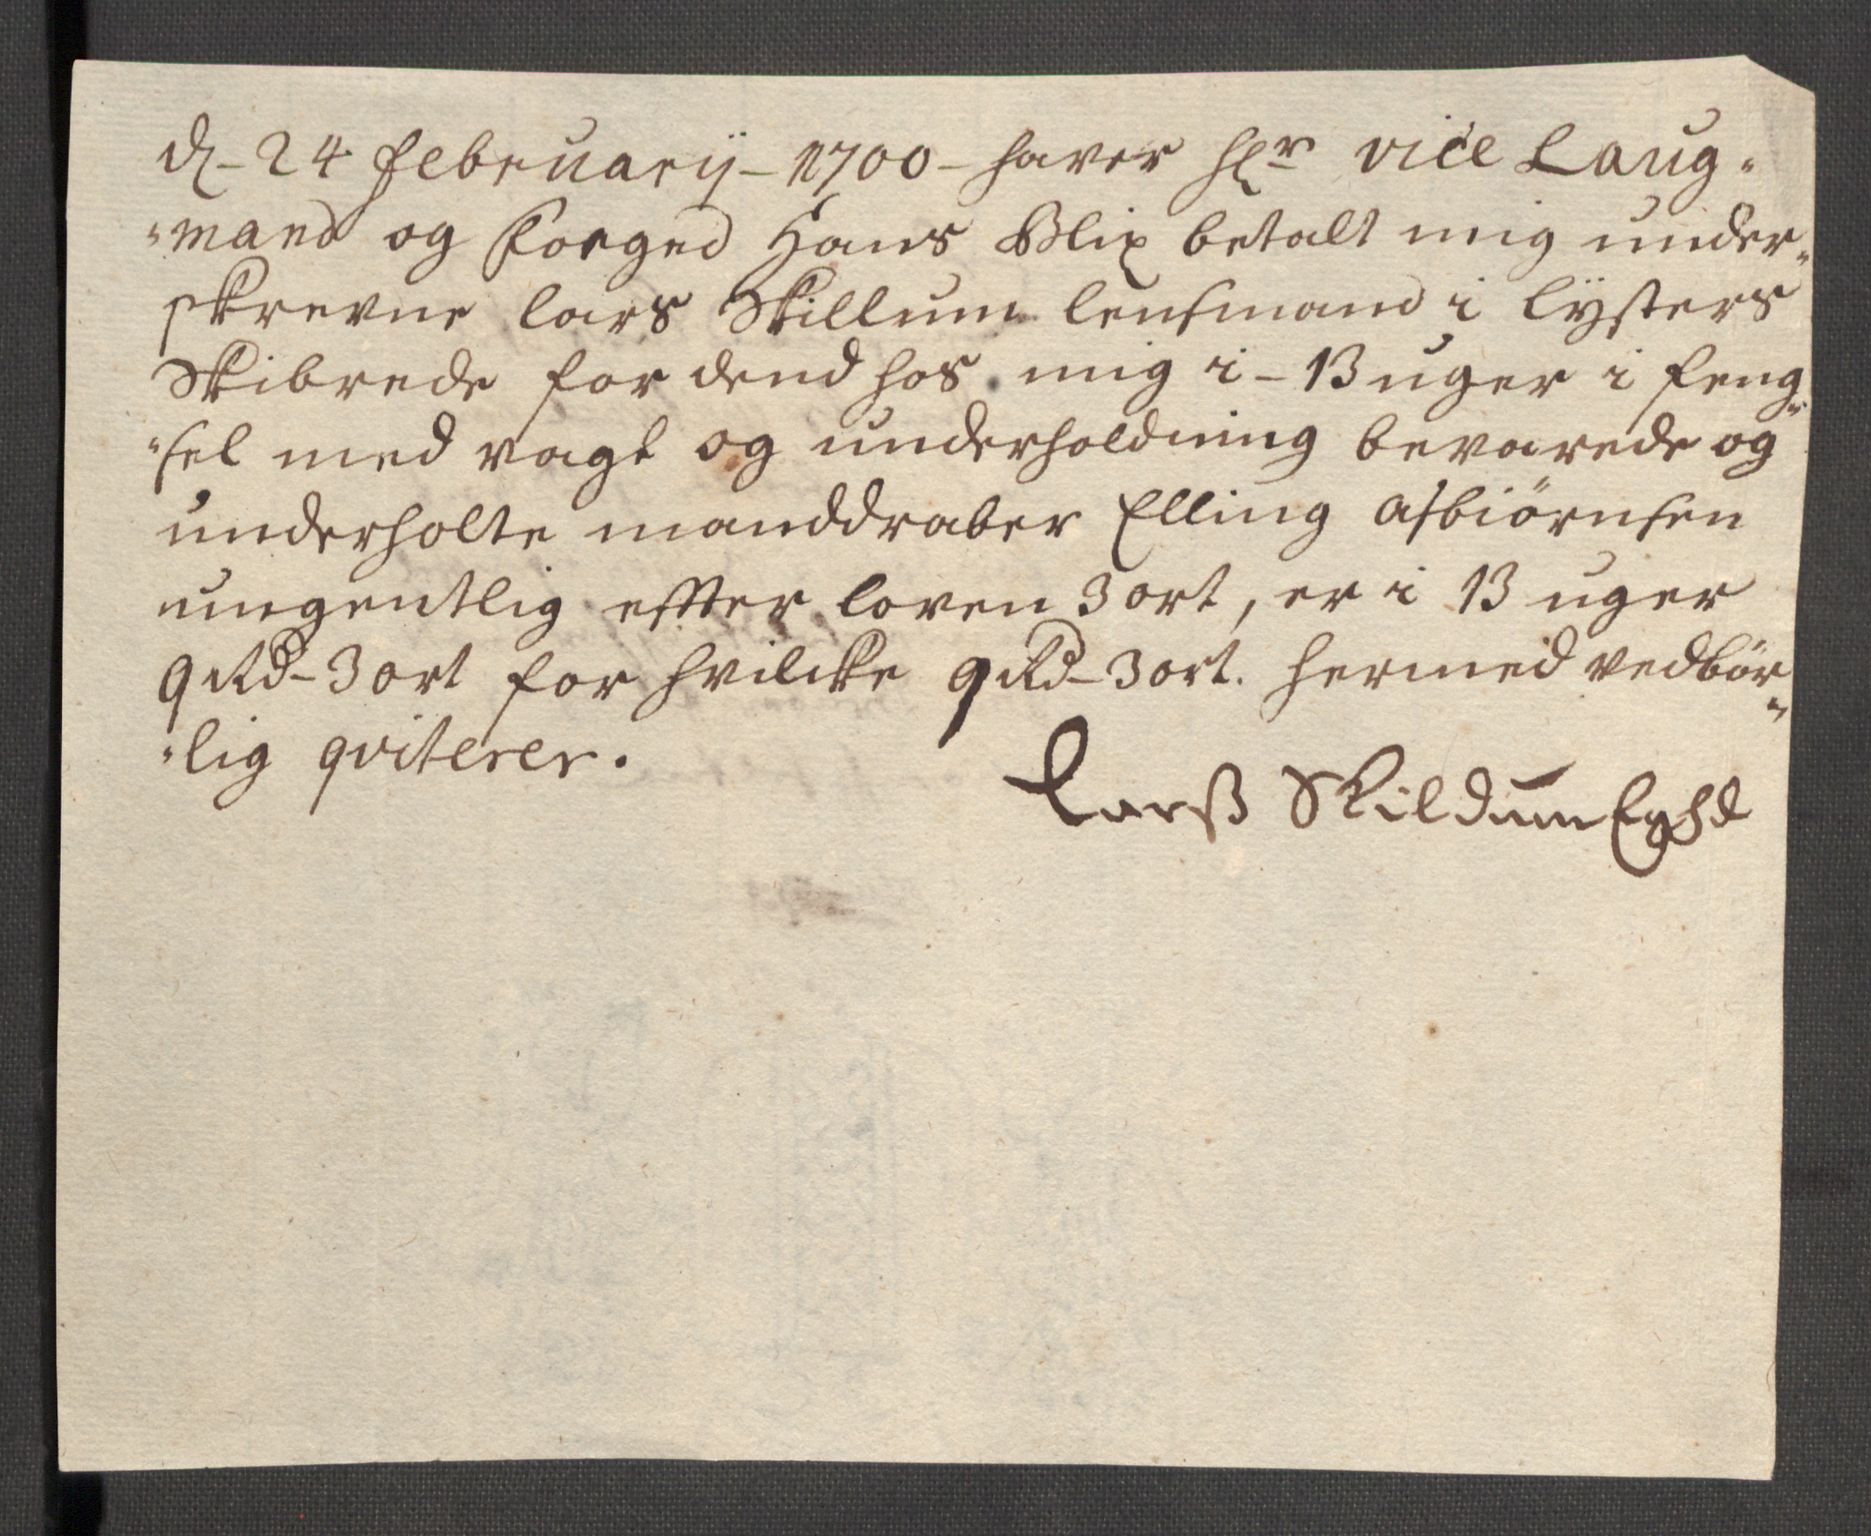 d. 24 februarij 1700 haver hr vice Laug-
mand og Foaged Hans Blix betalt mig under-
skrevne Lars Skillum lensmand i Lÿsters
Skibrede for dend hos mig i 13 uger i feng-
sel med vagt og underholdning bevarede og
underholte manddraber Elling Asbiörnsen
ungentlig effter loven 3 ort, er i 13 uger
9 Rd - 3 ort for hvilcke 9 Rd - 3 ort. hermed vedbör-
lig qviterer.
Larß Skildum Eghd